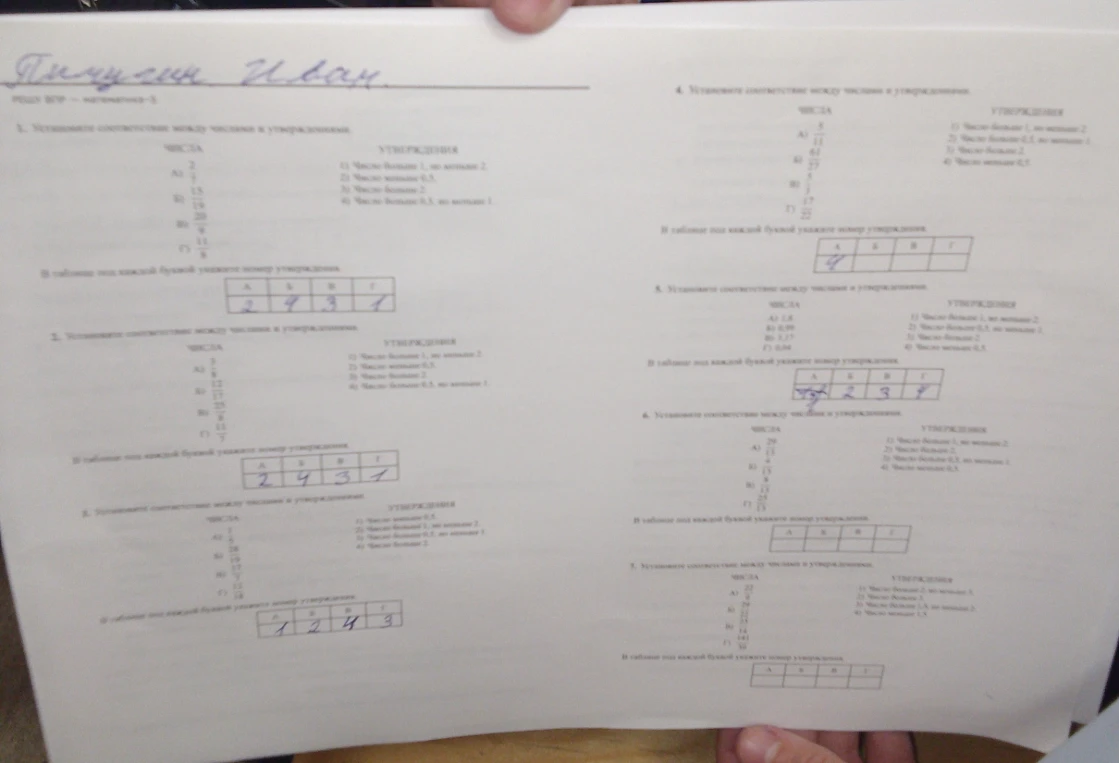 Пичугин Иван.
РЕШУ ВПР — математика–5
1. Установите соответствие между числами и утверждениями.
ЧИСЛА
УТВЕРЖДЕНИЯ
А)
Б) 13/19
В) 20/9
Г) 11/8
1) Число больше 1, но меньше 2.
2) Число меньше 0,5.
3) Число больше 2.
4) Число больше 0,5, но меньше 1.
В таблице под каждой буквой укажите номер утверждения.
А Б В Г
2 4 3 1
2. Установите соответствие между числами и утверждениями.
ЧИСЛА
УТВЕРЖДЕНИЯ
А)
Б) 12/17
В) 25/8
Г)
1) Число больше 1, но меньше 2.
2) Число меньше 0,5.
3) Число больше 2.
4) Число больше 0,5, но меньше 1.
В таблице под каждой буквой укажите номер утверждения.
А Б В Г
2 4 3 1
3. Установите соответствие между числами и утверждениями.
ЧИСЛА
УТВЕРЖДЕНИЯ
А)
Б)
В)
Г)
1) Число меньше 0,5.
2) Число больше 1, но меньше 2.
3) Число больше 0,5, но меньше 1.
4) Число больше 2.
В таблице под каждой буквой укажите номер утверждения.
А Б В Г
1 2 4 3
4. Установите соответствие между числами и утверждениями.
ЧИСЛА
УТВЕРЖДЕНИЯ
А) 5/13
Б) 61/27
В)
Г) 17/22
1) Число больше 1, но меньше 2.
2) Число больше 0,5, но меньше 1.
3) Число больше 2.
4) Число меньше 0,5.
В таблице под каждой буквой укажите номер утверждения.
А Б В Г
4
5. Установите соответствие между числами и утверждениями.
ЧИСЛА
УТВЕРЖДЕНИЯ
А) 1,8
Б) 0,99
В) 3,17
Г) 0,04
1) Число больше 1, но меньше 2.
2) Число больше 0,5, но меньше 1.
3) Число больше 2.
4) Число меньше 0,5.
В таблице под каждой буквой укажите номер утверждения.
А Б В Г
2 3 4
6. Установите соответствие между числами и утверждениями.
ЧИСЛА
УТВЕРЖДЕНИЯ
А) 29/13
Б)
В) 8/13
Г) 25/13
1) Число больше 1, но меньше 2.
2) Число больше 2.
3) Число больше 0,5, но меньше 1.
4) Число меньше 0,5.
В таблице под каждой буквой укажите номер утверждения.
А Б В Г
7. Установите соответствие между числами и утверждениями.
ЧИСЛА
УТВЕРЖДЕНИЯ
А)
Б)
В)
Г)
В таблице под каждой буквой укажите номер утверждения.
А Б В Г